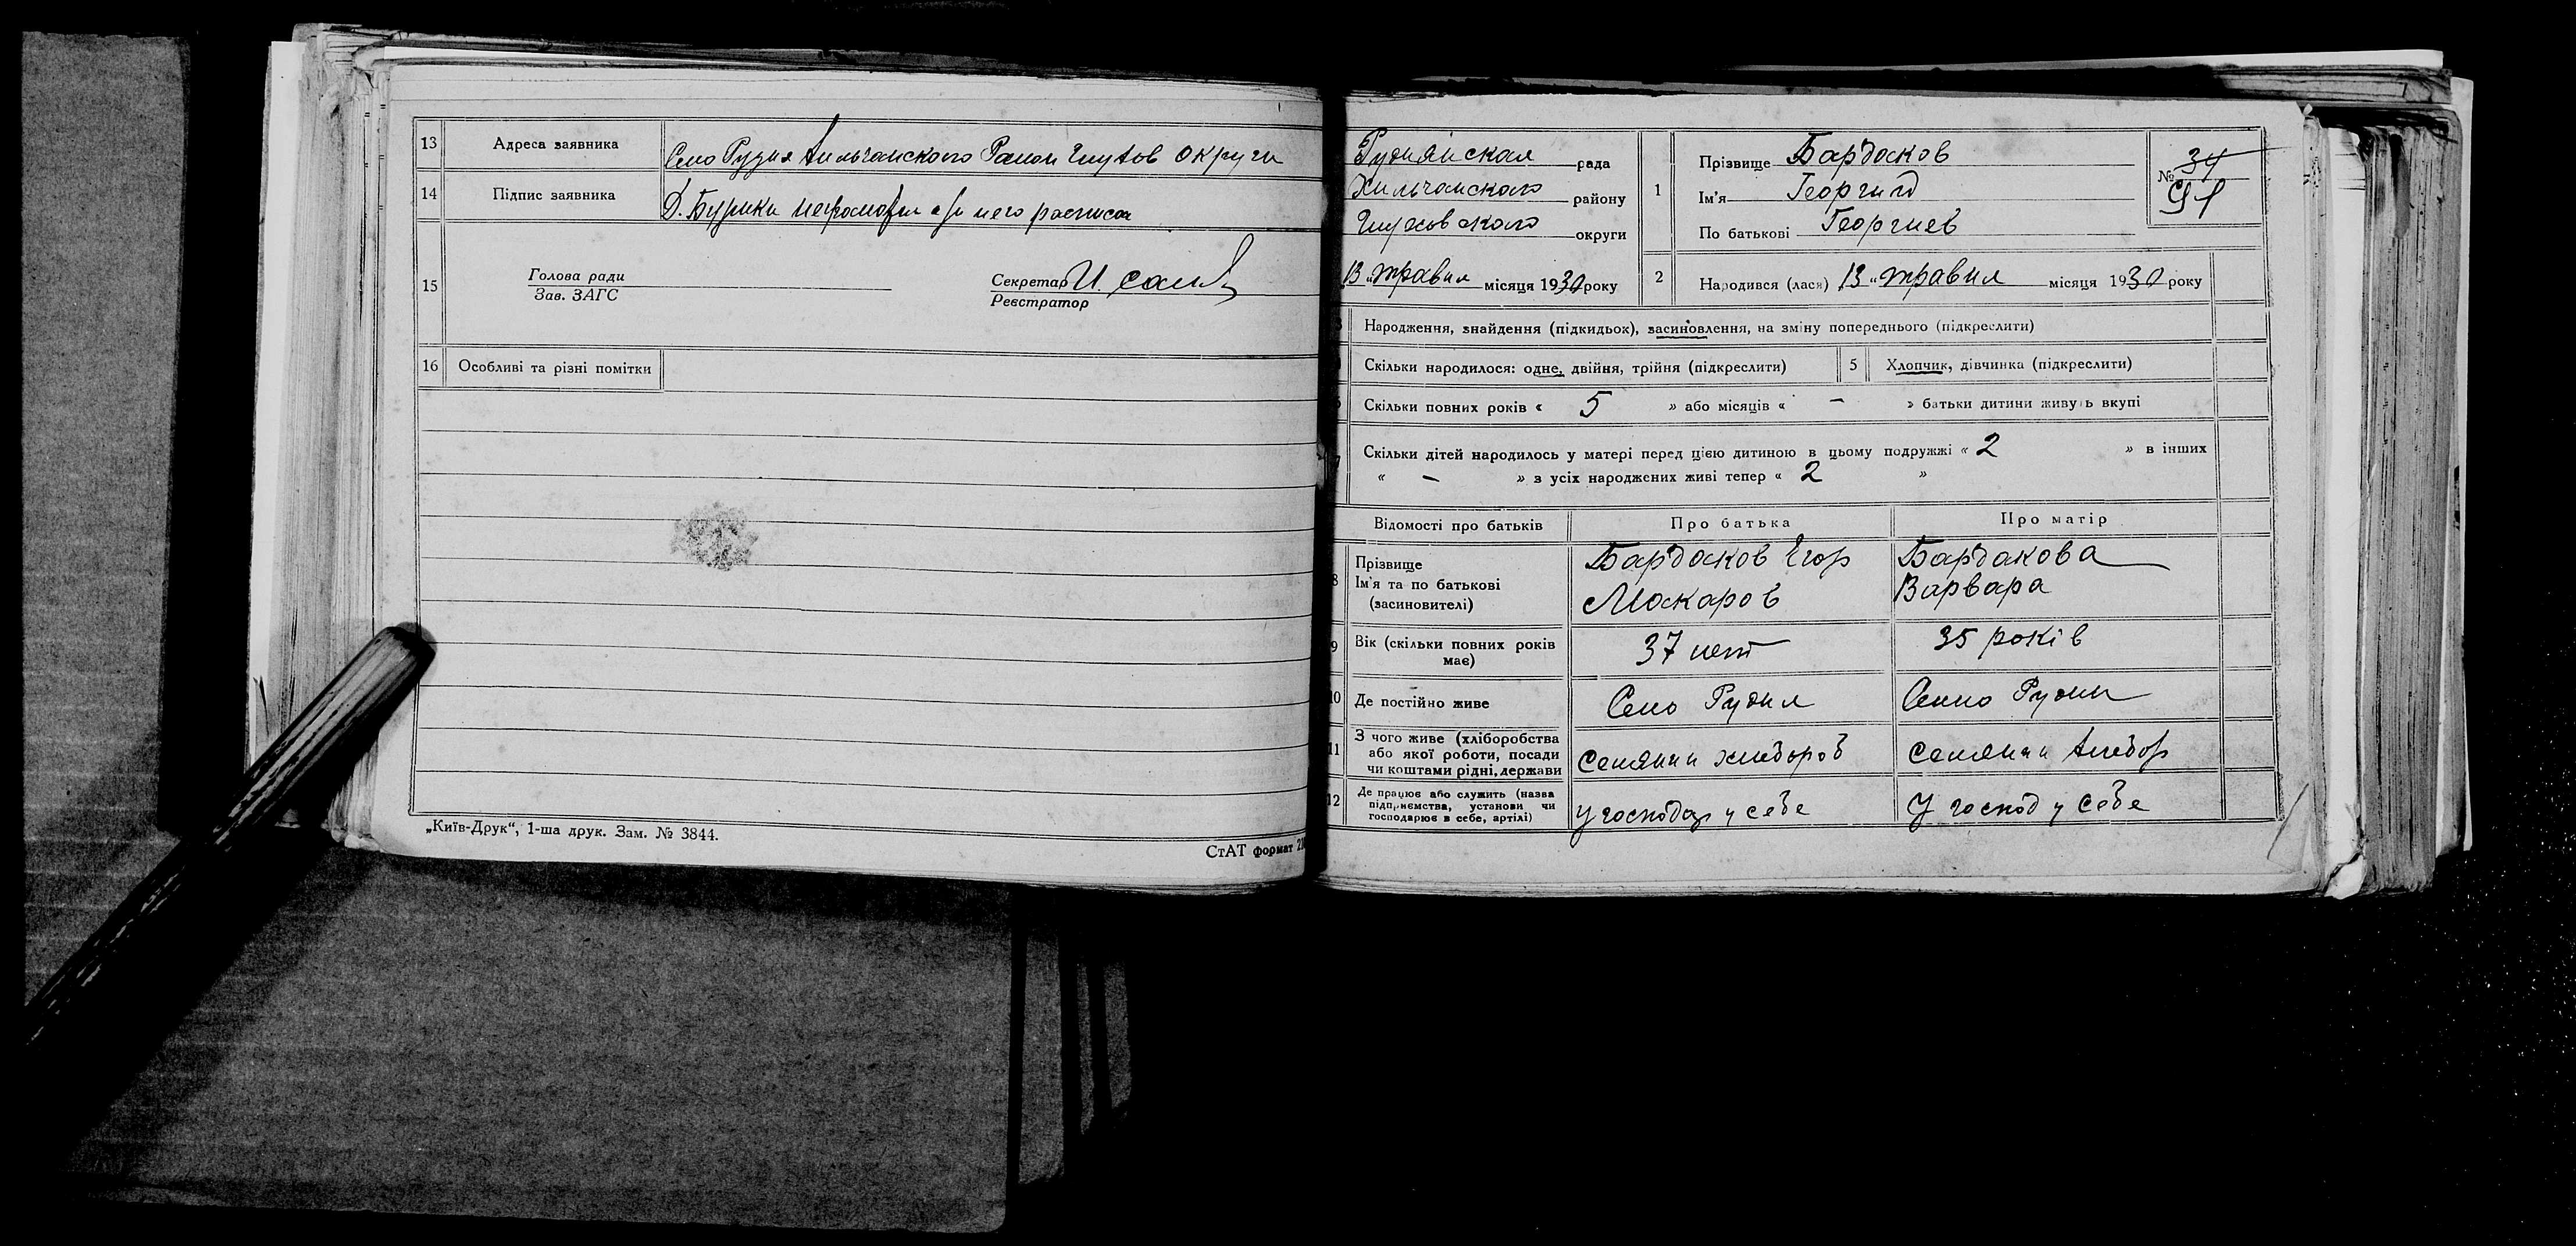 13 Адреса заявника Село Рудня Хильчанского Район Глухов округи
14 Підпис заявника Д. неграмотен а за него расписал
15 Голова ради
Зав. ЗАГС
Секретар И.
Реєстратор
16 Особливі та різні помітки
„Київ-Друк“, 1-ша друк. Зам. № 3844.
СтАТ формат
Руднянская рада
Хильчанского району
Глуховского округи
13 „травня місяця 1930 року
1 Прізвище Бардаков
Ім'я Георгий
По батькові Георгиев
№ 34
91
2 Народився (лася) 13 „травня місяця 1930 року
Народження, знайдення (підкидьок), засиновлення, на зміну попереднього (підкреслити)
Скільки народилося: одне, двійня, трійня (підкреслити)
5 Хлопчик, дівчинка (підкреслити)
Скільки повних років « 5 » або місяців « – » батьки дитини живуть вкупі
7 Скільки дітей народилось у матері перед цією дитиною в цьому подружжі « 2 » в інших
« – » з усіх народжених живі тепер « 2 »
Відомості про батьків Про батька Про матір
8 Прізвище
Ім'я та по батькові
(засиновителі)
Бардаков Егор
Макаров
Бардакова
Варвара
9 Вік (скільки повних років
має)
37 лет
35 років
10 Де постійно живе Село Рудня Село Рудни
11 З чого живе (хліборобства
або якої роботи, посади
чи коштами рідні, держави
Селянин хлебороб
Селянин хлебор
12 Де працює або служить (назва
підприємства, установи чи
господарює в себе, артілі)
У господар у себе
У господ у себе